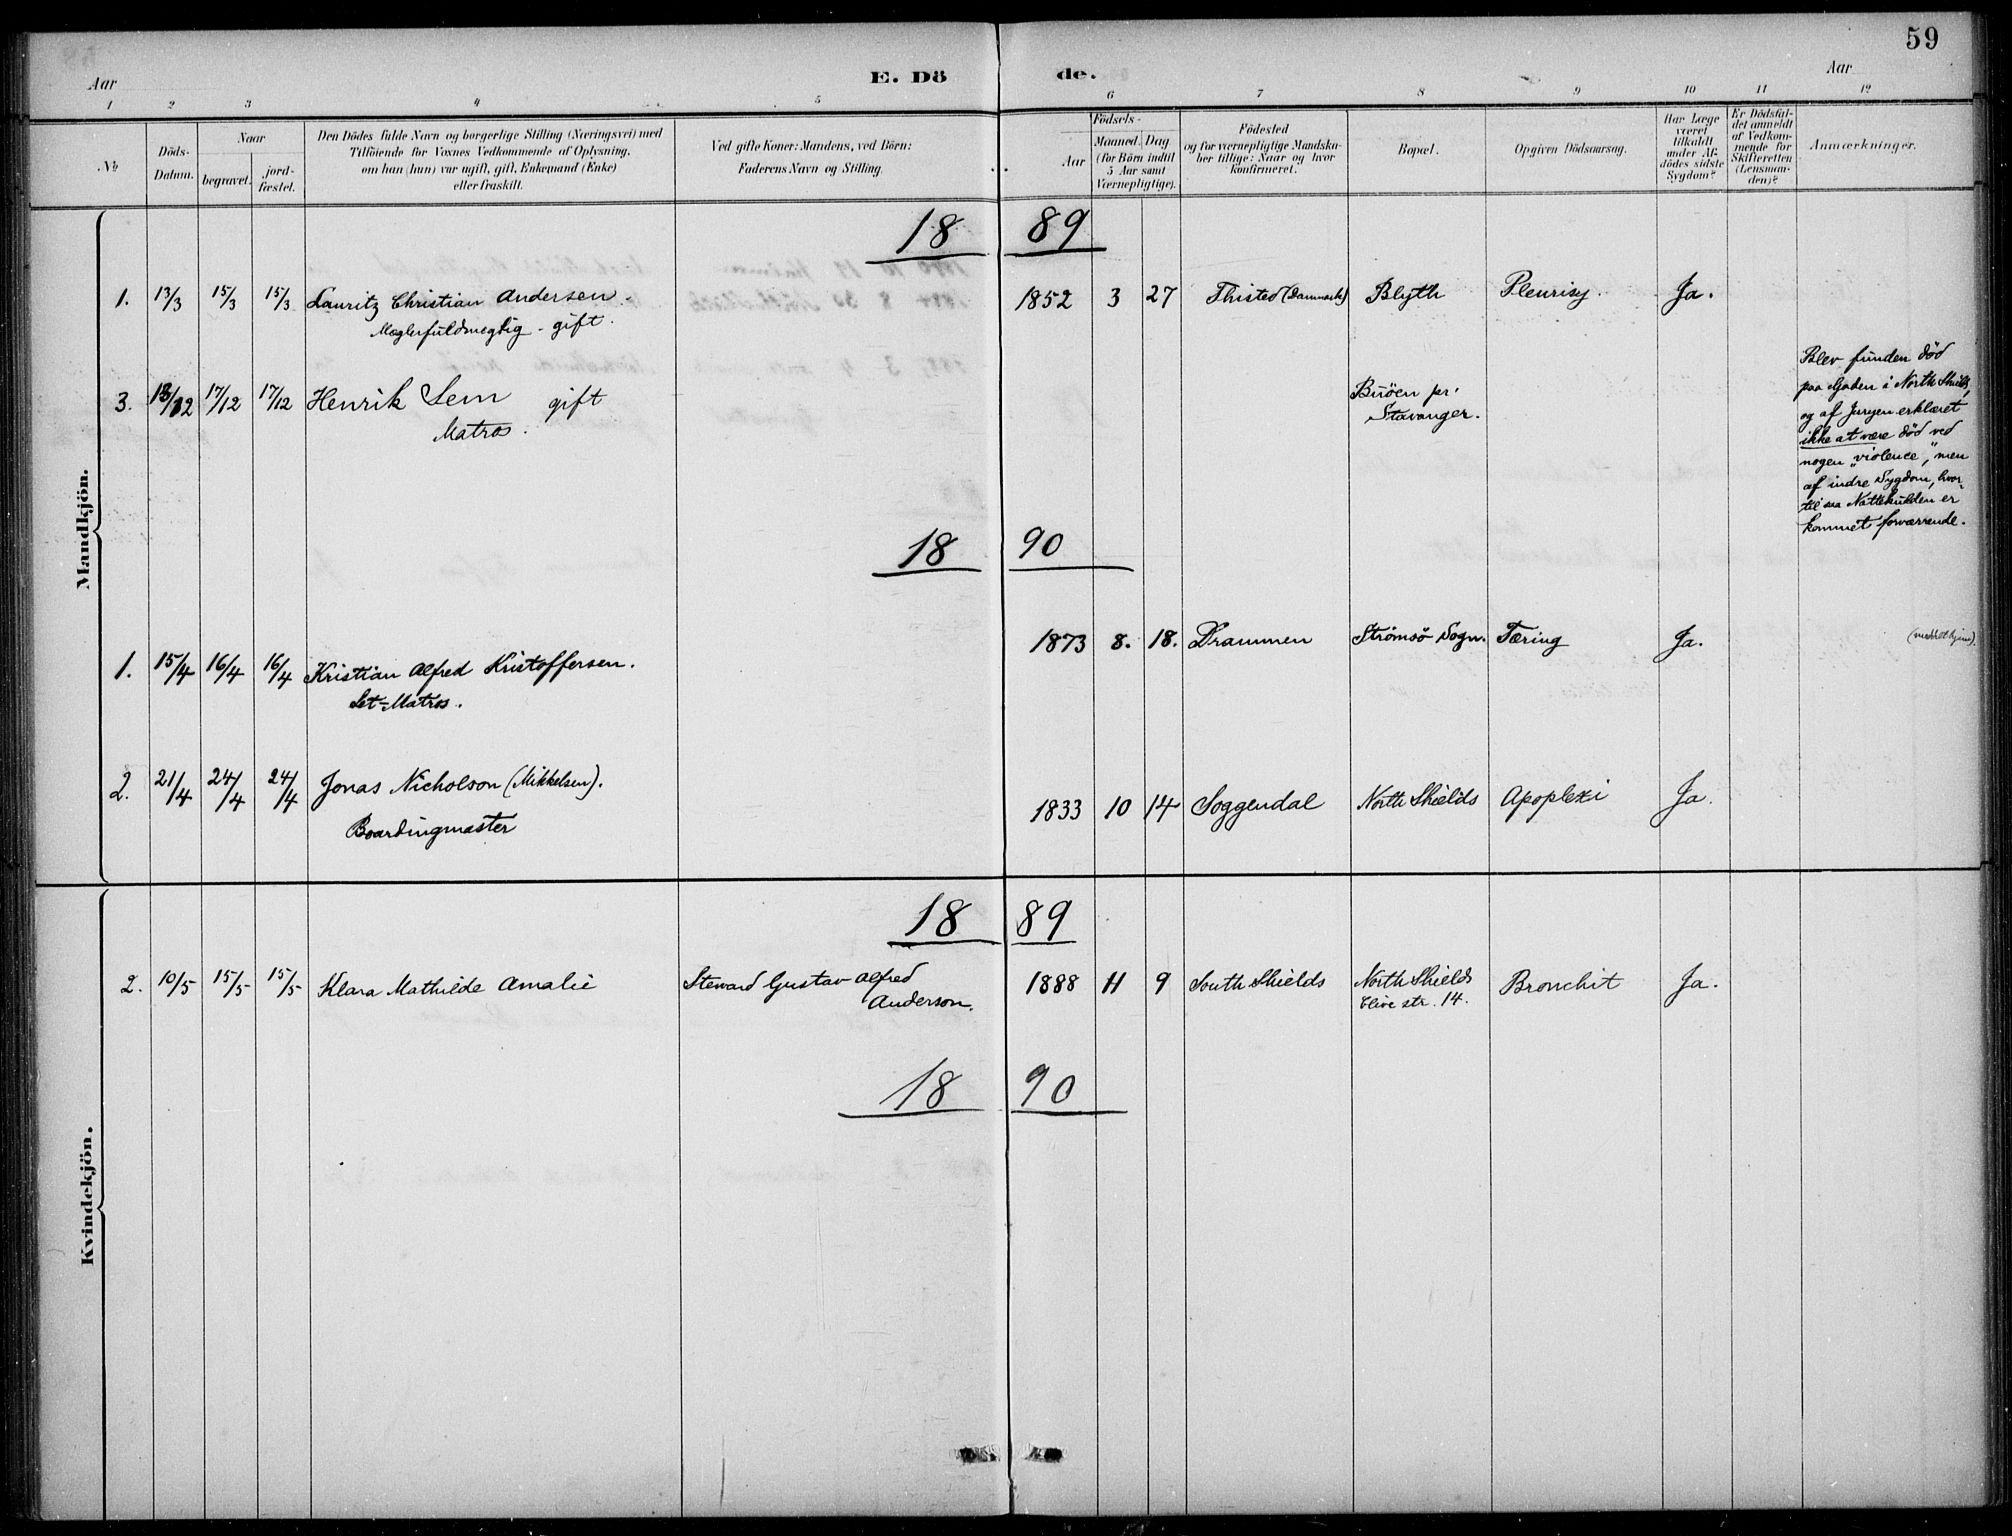 59
Aar
E. Dö de.
Aar
1 2 3 4 5 6 7 8 9 10 11 12
No
Döds-
Datum.
Naar
begravet.
jord-
fæstet.
Den Dödes fulde Navn og borgerlige Stilling (Næringsvei) med
Tilföiende for Voxnes Vedkommende af Oplysning,
om han (hun) var ugift, gift, Enkemand (Enke)
eller fraskilt.
Ved gifte Koner: Mandens, ved Börn:
Faderens Navn og Stilling.
Födsels-
Aar
Maaned.
Dag
(for Börn indtil
5 Aar samt
Værnepligtige).
Födested
og for værnepligtige Mandska-
ber tillige: Naar og hvor
konfirmeret.
Bopæl.
Opgiven Dödsaarsag.
Har Læge
været
tilkaldt
under Af-
dödes sidste
Sygdom?
Er Dödsfal-
det anmeldt
af Vedkom-
mende for
Skifteretten
(Lensman-
den)?
Anmærkninger.
Mandkjön.
18 89
1. 13/3 15/3 15/3 Lauritz Christian Andersen 1852 3 27 Thisted (Danmark) Blyth Pleurisy. Ja.
Mæglerfuldmægtig - gift.
3. 13/12 17/12 17/12 Henrik Sem gift Buöen pr.
Matros. Stavanger.
Blev funden död
paa Gaden i North Shields,
og af Juryen erklæret
ikke at være död ved
nogen "violence", men
af indre Sygdom, hvor-
til saa Nattekulden er
kommet forværrende.
18 90
1. 15/4 16/4 16/4 Kristian Alfred Kristoffersen. 1873 8. 18. Drammen Strömsö Sogn. Tæring Ja.
Let-Matros.
2. 21/4 24/4 24/4 Jonas Nicholson (Mikkelsen). 1833 10 14 Soggendal North Shields Apoplexi Ja.
Boardingmaster
Kvindekjön.
18 89
2. 10/5 15/5 15/5 Klara Mathilde Amalie Steward Gustav Alfred 1888 11 9 South Shields North Shields Bronchit Ja.
Anderson. Clive str. 14.
18 90